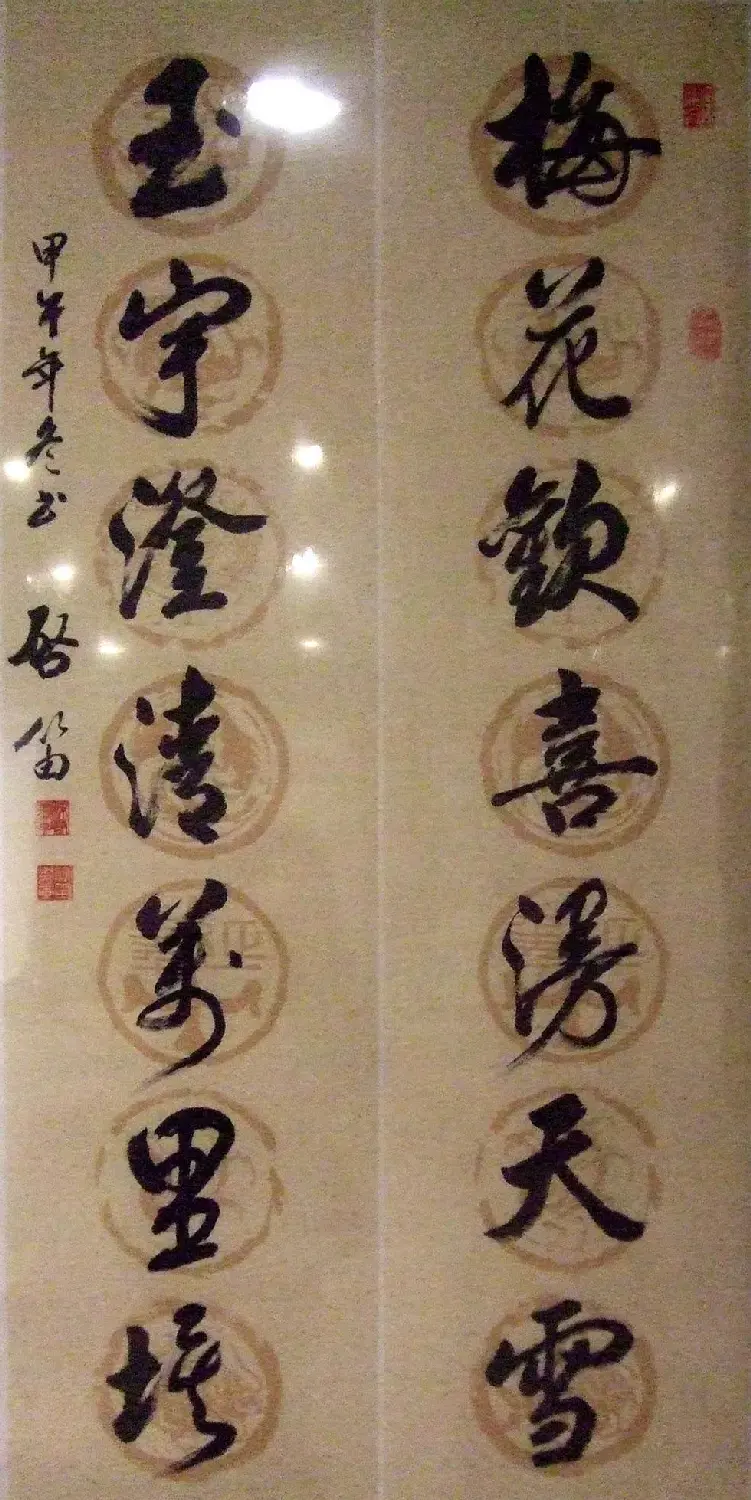 梅花歡喜漫天雪
玉宇澄清萬里埃
甲午年冬书 啟笛